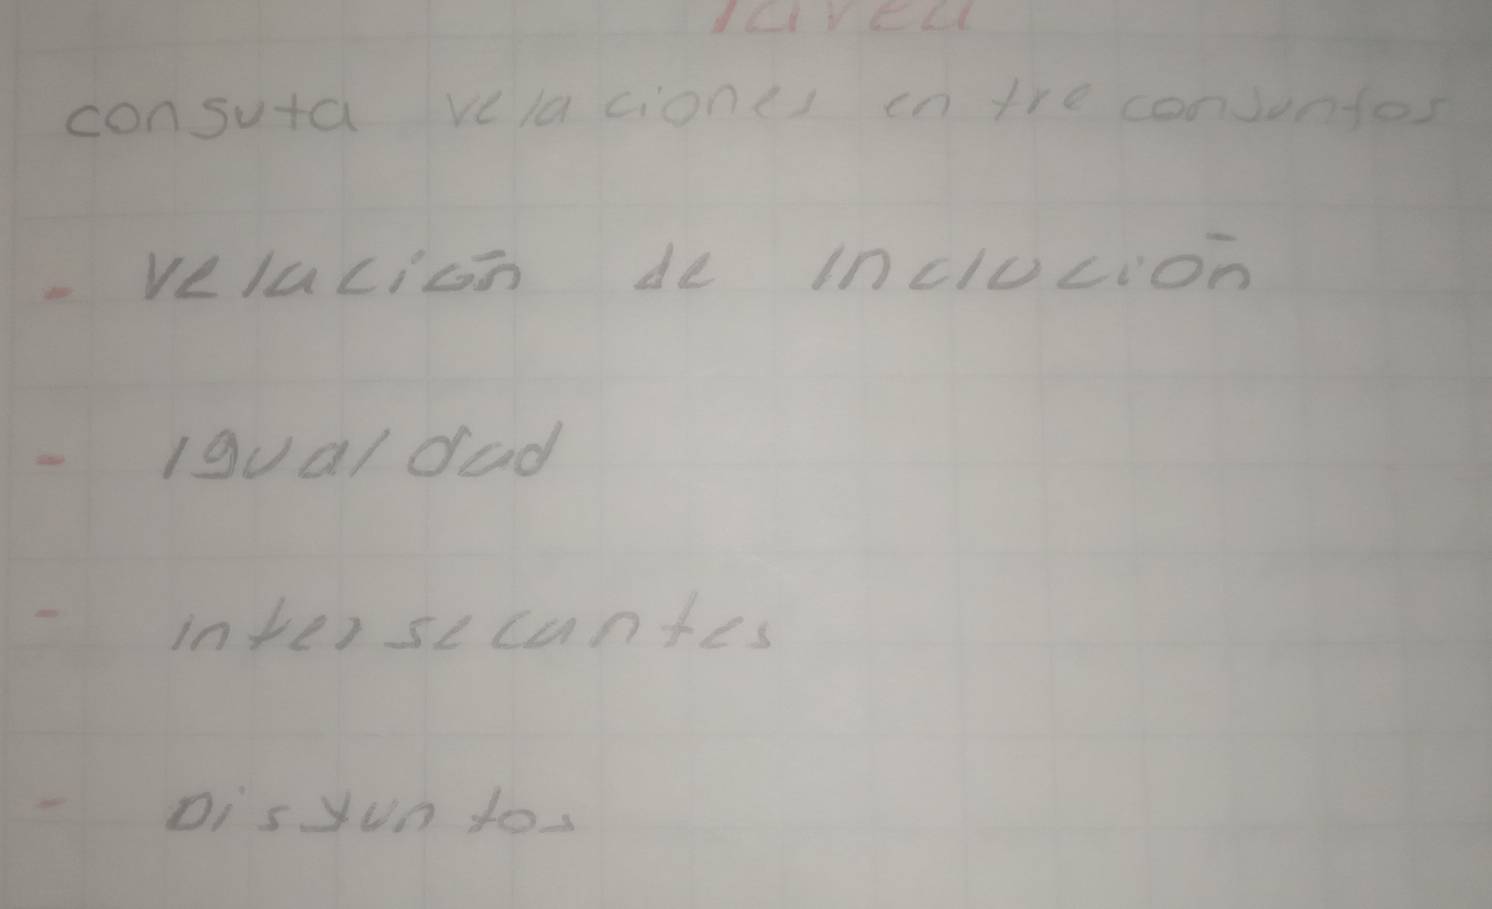 Tarea
consuta relaciones entre conjuntos
- relación de Inclución
- Igualdad
- intersecantes
- Disyuntos